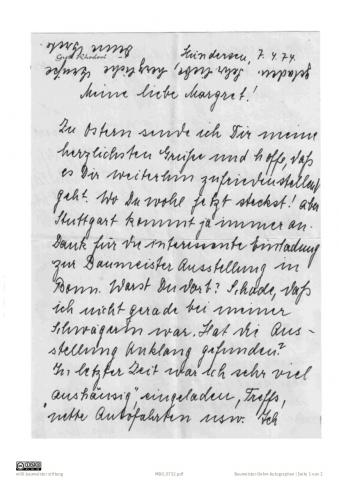 Hindersen, 7.4.74
Meine liebe Margret!
Zu Ostern sende ich Dir meine
herzlichsten Grüße und hoffe, daß
es Dir weiterhin zufriedenstellend
geht. Wo Du wohl jetzt steckst! aber
Stuttgart kommt ja immer an.
Dank für die interessante Einladung
zur Baumeister Ausstellung in
Bonn. Warst Du dort? Schade, daß
ich nicht gerade bei meiner
Schwägerin war. Hat die Aus-
stellung Anklang gefunden?
In letzter Zeit war ich sehr viel
"aushäusig", eingeladen, Treffs,
nette Autofahrten usw. Ich
willi baumeister stiftung
Baumeister-Dehm-Autographen | Seite 1 von 2